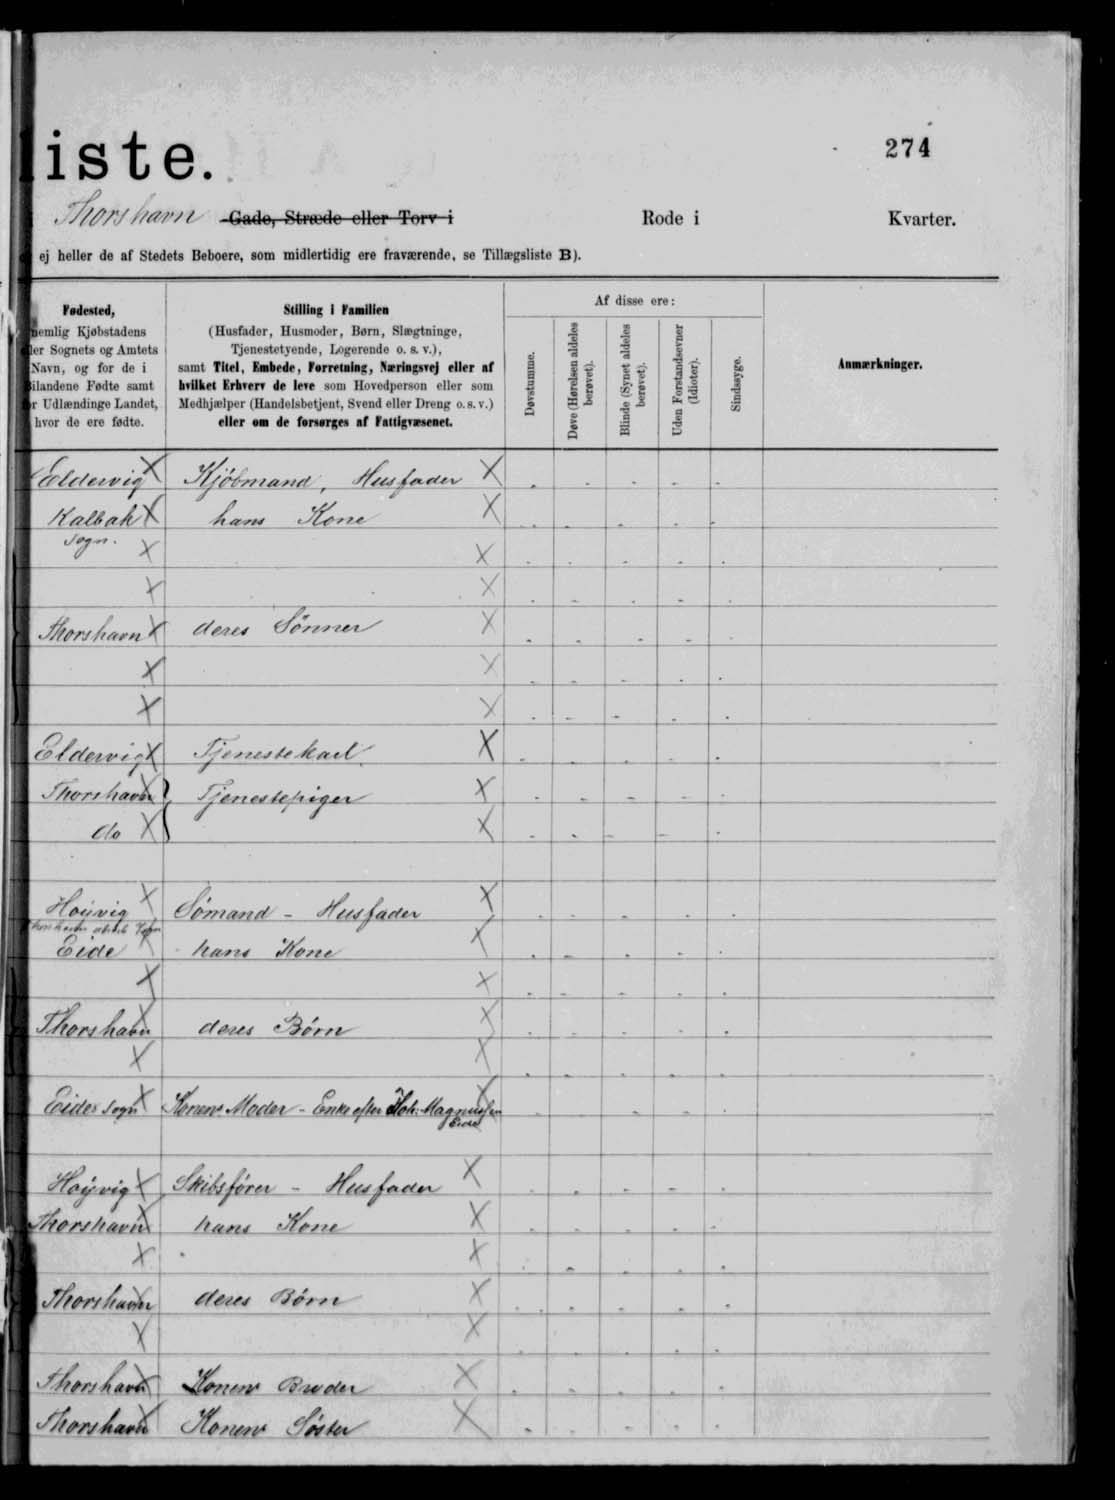 liste.
274
Thorshavn Gade, Stræde eller Torv i Rode i Kvarter.
ej heller de af Stedets Beboere, som midlertidig ere fraværende, se Tillægsliste B).
Fødested,
nemlig Kjøbstadens
eller Sognets og Amtets
Navn, og for de i
Bilandene Fødte samt
for Udlændinge Landet,
hvor de ere fødte.
Stilling i Familien
(Husfader, Husmoder, Børn, Slægtninge,
Tjenestetyende, Logerende o. s. v.),
samt Titel, Embede, Forretning, Næringsvej eller af
hvilket Erhverv de leve som Hovedperson eller som
Medhjælper (Handelsbetjent, Svend eller Dreng o. s. v.)
eller om de forsørges af Fattigvæsenet.
Af disse ere:
Døvstumme.
Døve (Hørelsen aldeles
berøvet).
Blinde (Synet aldeles
berøvet).
Uden Forstandsevner
(Idioter).
Sindssyge.
Anmærkninger.
Eldevig X Kjöbmand, Husfader X
Kalbak X hans Kone X
Sogn. X X
X X
Thorshavn X deres Sönner X
X X
X X
Eldevig X Tjenestekarl X
Thorshavn X Tjenestepiger X
do X X
Hoyvig X Sömand - Husfader X
Eide X hans Kone X
X X
Thorshavn X deres Börn X
X X
Eides Sogn X Konens Moder - Enke efter Joh: Magnussen X
Eide
Hoÿvig X Skibsförer - Husfader X
Thorshavn X hans Kone X
X X
Thorshavn X deres Börn X
X X
Thorshavn X Konens Broder X
Thorshavn X Konens Söster X